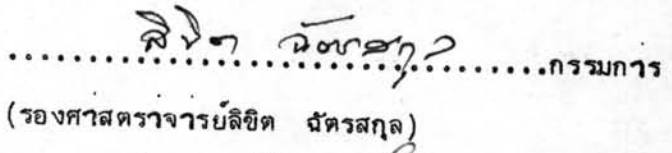 ลิขิต ฉัตรสกุล
........................................กรรมการ
(รองศาสตราจารย์ลิขิต ฉัตรสกุล)